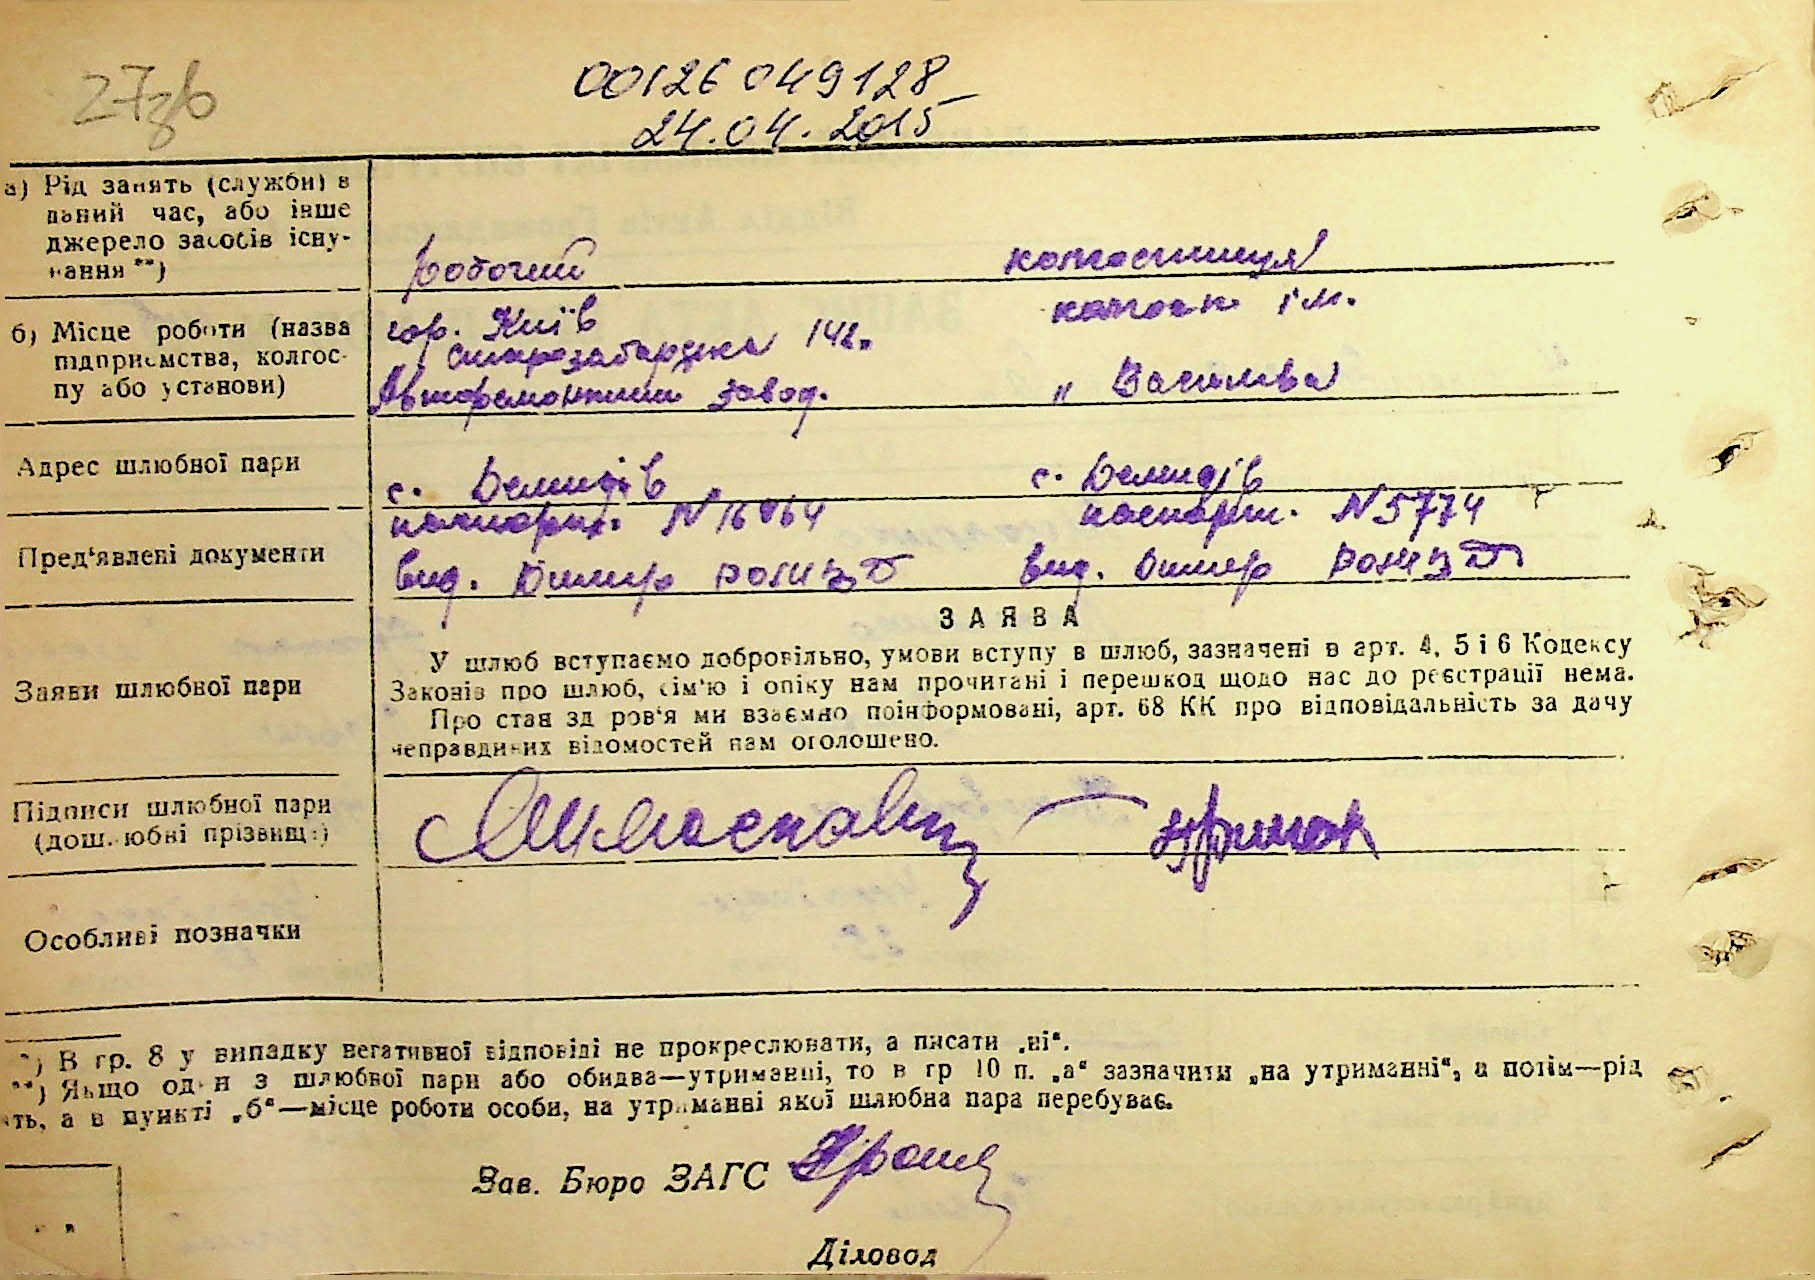 27зв
00126 049128
24.04.2015
а) Рід занять (служби) в
даний час, або інше
джерело засобів існу-
вання **)
робочий
колгоспниця
б) Місце роботи (назва
підприємства, колгос-
пу або установи)
гор. Київ
колгосп ім.
142.
Авторемонтний завод.
"
Адрес шлюбної пари
с. Демидів
с. Демидів
Пред'явлені документи
паспорт. N
паспорт. N 5774
вид. Димер
вид. Димер
Заяви шлюбної пари
ЗАЯВА
У шлюб вступаємо добровільно, умови вступу в шлюб, зазначені в арт. 4, 5 і 6 Кодексу
Законів про шлюб, сім'ю і опіку нам прочитані і перешкод щодо нас до реєстрації нема.
Про стан здоров'я ми взаємно поінформовані, арт. 68 КК про відповідальність за дачу
неправдивих відомостей нам оголошено.
Підписи шлюбної пари
(дошлюбні прізвища)
Особливі позначки
*) В гр. 8 у випадку негативної відповіді не прокреслювати, а писати „ні“.
**) Якщо один з шлюбної пари або обидва—утриманці, то в гр 10 п. „а“ зазначити „на утриманні“, а потім—рід
ть, а в пункті „б“—місце роботи особи, на утриманні якої шлюбна пара перебуває.
Зав. Бюро ЗАГС
Діловод